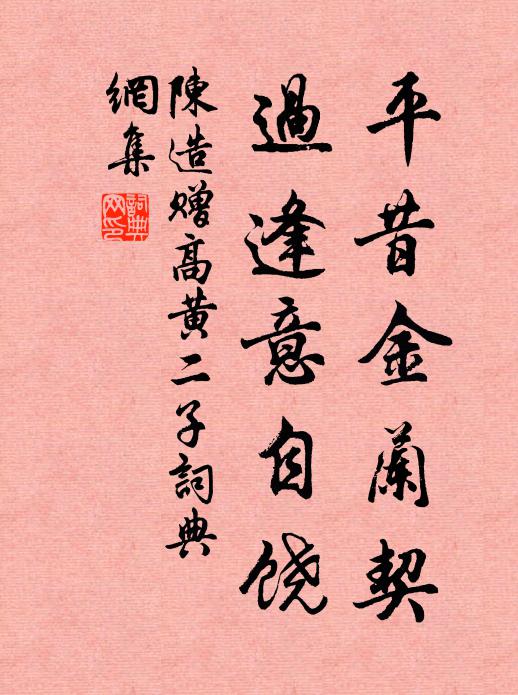 平昔金蘭契
過逢意自饶
陳造贈高黄二子詞典
網集
詞典網印